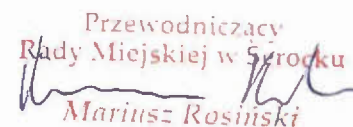 Przewodniczący
Rady Miejskiej w Serocku
Mariusz Rosiński